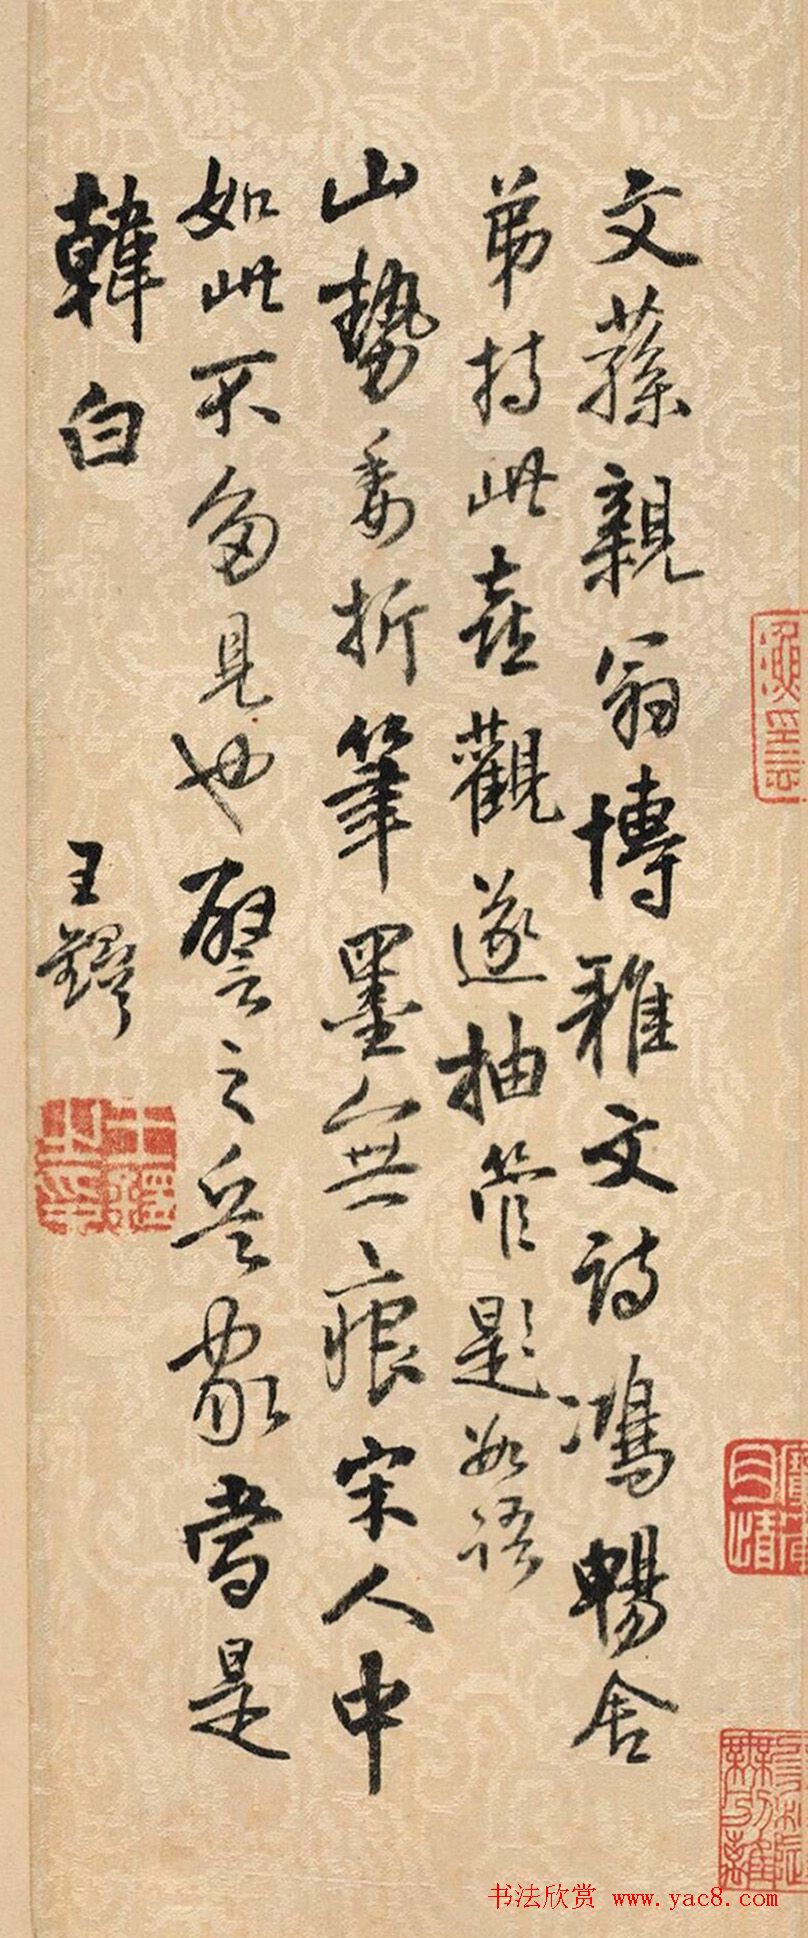 文蓀親翁博雅文詩鴻暢舍
弟持此喜觀遂抽管題数語
山勢委折筆墨無痕宋人中
如此不多見也譬之兵家當是
韓白
王鐸
王鐸之印
书法欣赏 www.yac8.com